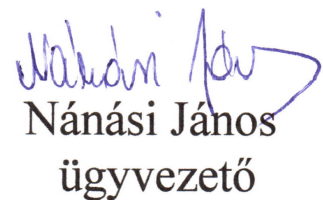 Nánási János
Nánási János
ügyvezető